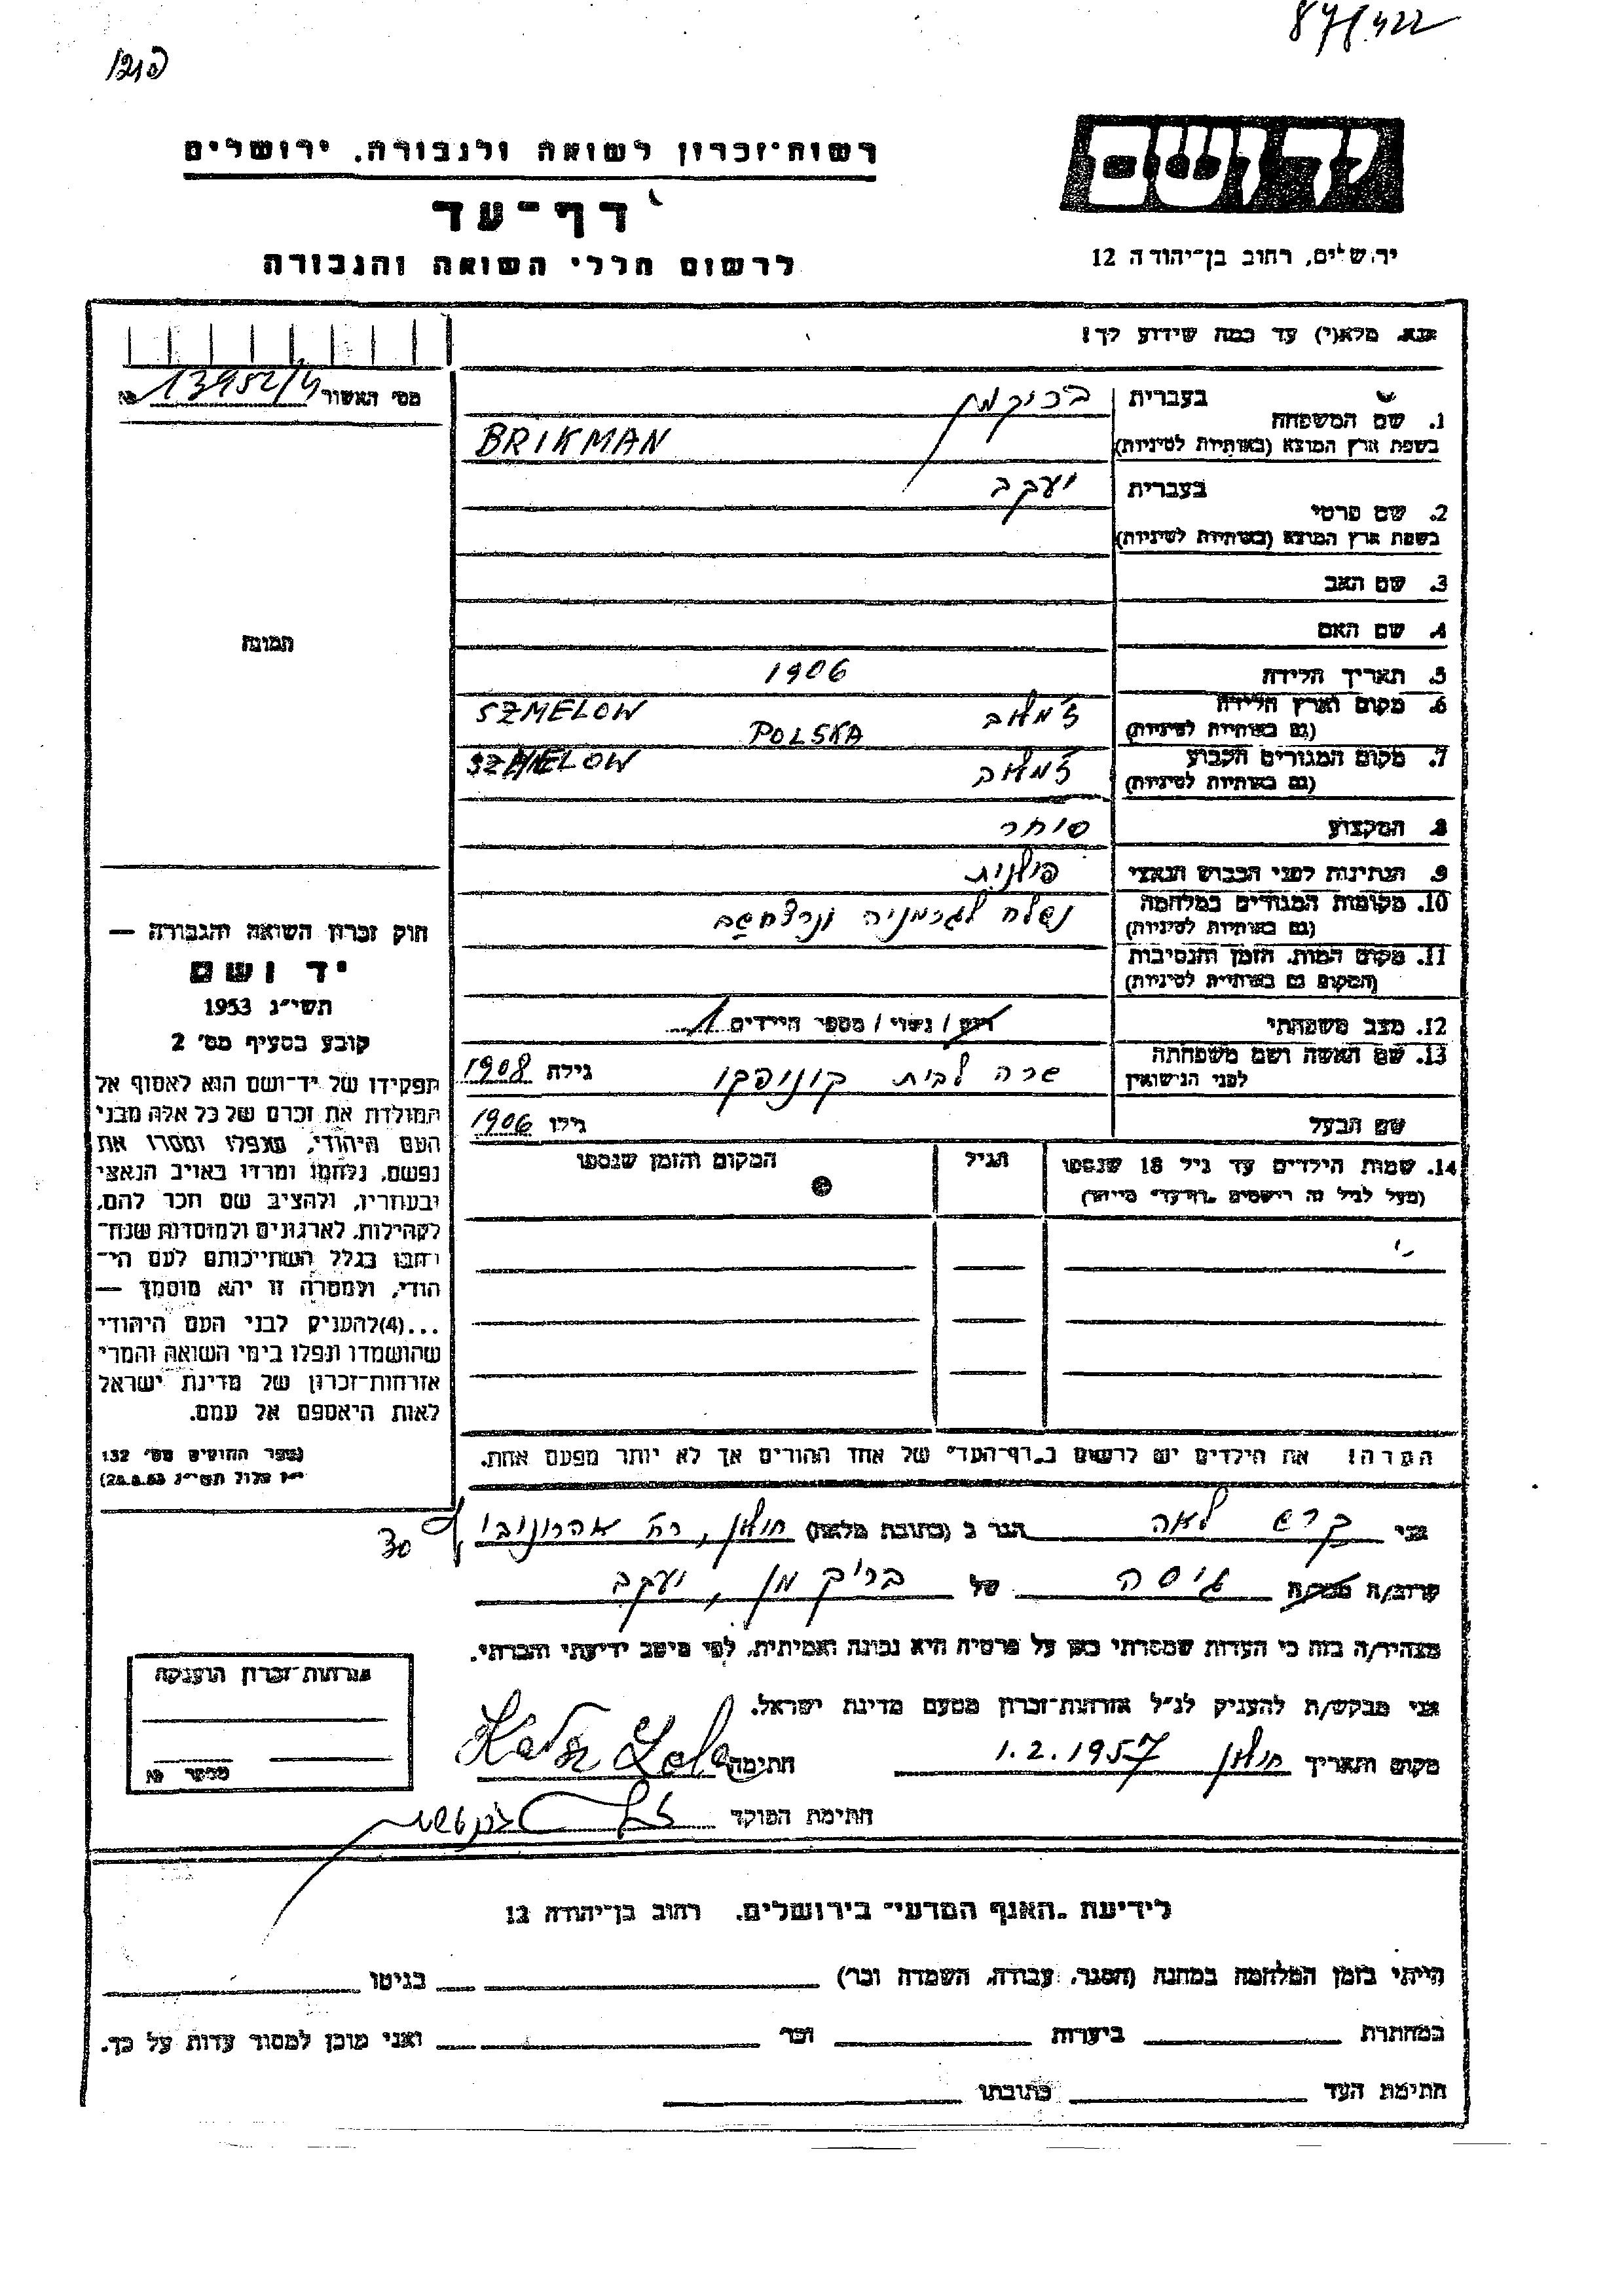 87/422
רשות־זכרון לשואה ולגבורה, ירושלים
יד ושם
דף־עד
ירושלים, רחוב בן־יהודה 12
לרשום חללי השואה והגבורה
אנא, מלא(י) עד כמה שידוע לך!
מס' האשור 13952/4 №
בעברית בריקמן
1. שם המשפחה
בשפת ארץ המוצא (באותיות לטיניות) BRIKMAN
בעברית יעקב
2. שם פרטי
בשפת ארץ המוצא (באותיות לטיניות)
3. שם האב
4. שם האם
תמונה
5. תאריך הלידה 1906
6. מקום וארץ הלידה SZMELOW POLSKA
(גם באותיות לטיניות)
7. מקום המגורים הקבוע SZMELOW
(גם באותיות לטיניות)
8. המקצוע סוחר
9. הנתינות לפני הכבוש הנאצי פולנית
10. מקומות המגורים במלחמה נשלח לגרמניה
(גם באותיות לטיניות)
11. מקום המות, הזמן והנסיבות
(המקום גם באותיות לטיניות)
12. מצב משפחתי רווק / נשוי / מספר הילדים 1
13. שם האשה ושם משפחתה שרה לבית גילה 1908
לפני הנישואין
שם הבעל גילו 1906
14. שמות הילדים עד גיל 18 שנספו הגיל המקום והזמן שנספו
(מעל לגיל זה רושמים "דף־עד" מיוחד)
הערה! את הילדים יש לרשום ב"דף־העד" של אחד ההורים אך לא יותר מפעם אחת.
חוק זכרון השואה והגבורה —
יד ושם
תשי"ג 1953
קובע בסעיף מס' 2
תפקידו של יד־ושם הוא לאסוף אל
המולדת את זכרם של כל אלה מבני
העם היהודי, שנפלו ומסרו את
נפשם, נלחמו ומרדו באויב הנאצי
ובעוזריו, ולהציב שם וזכר להם,
לקהילות, לארגונים ולמוסדות שנח־
רבו בגלל השתייכותם לעם הי־
הודי, ולמטרה זו יהא מוסמך —
...(4)להעניק לבני העם היהודי
שהושמדו ונפלו בימי השואה והמרי
אזרחות־זכרון של מדינת ישראל
לאות היאספם אל עמם.
(ספר החוקים מס' 132
י"ז אלול תשי"ג 28.8.53)
אני לאה הגר ב (כתובת מלאה) חולון, רח' אהרונוביץ 30
קרוב/ה מכר/ה גיסה של בריקמן, יעקב
מצהיר/ה בזה כי העדות שמסרתי כאן על פרטיה היא נכונה ואמיתית, לפי מיטב ידיעתי והכרתי.
אני מבקש/ת להעניק לנ"ל אזרחות־זכרון מטעם מדינת ישראל.
מקום ותאריך חולון 1.2.1957 חתימה
חתימת הפוקד
אזרחות־זכרון הוענקה
מספר №
לידיעת "האגף המדעי" בירושלים, רחוב בן־יהודה 12
הייתי בזמן המלחמה במחנה (הסגר, עבודה, השמדה וכו') בגיטו
במחתרת ביערות וכו' ואני מוכן למסור עדות על כך.
חתימת העד כתובתו